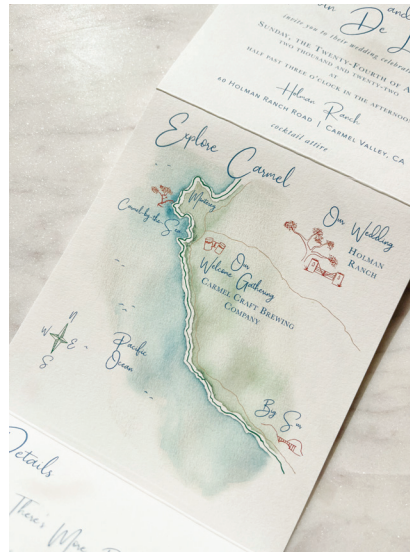 and
De
invite you to their wedding
Sunday, the Twenty-Fourth of
two thousand and twenty-two
at
half past three o'clock in the afternoon
Holman Ranch
60 Holman Ranch Road | Carmel Valley, CA
cocktail attire
Explore Carmel
Monterey
Carmel by the Sea
Our Wedding
Holman
Ranch
Our
Welcome Gathering
Carmel Craft Brewing
Company
N
W
E
S
Pacific
Ocean
Big Sur
Details
There's More